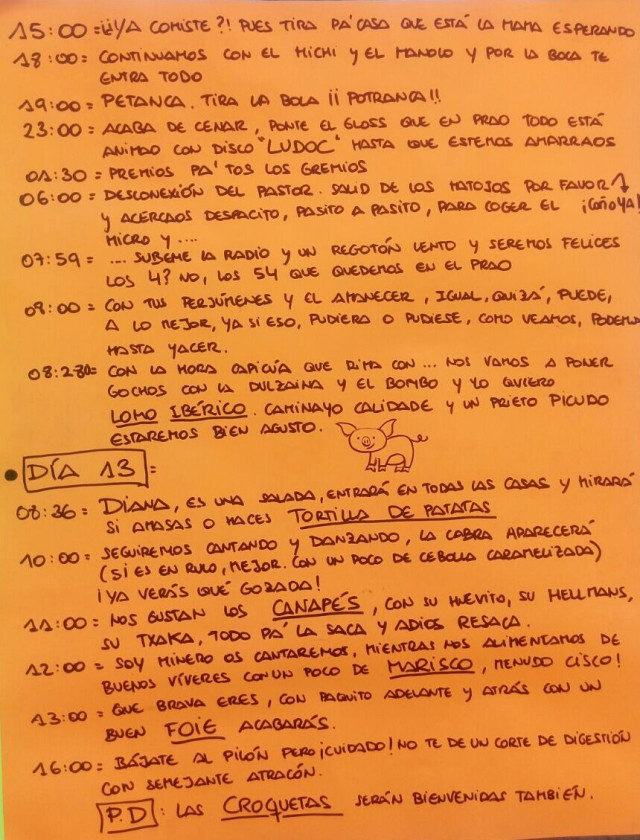 15:00 = ¡¿¡YA COMISTE?! PUES TIRA PA'CASA QUE ESTÁ LA MAMA ESPERANDO
18:00 = CONTINUAMOS CON EL MICHI Y EL MANOLO Y POR LA BOCA TE
ENTRA TODO
19:00 = PETANCA. TIRA LA BOLA ¡¡ POTRANCA!!
23:00 = ACABA DE CENAR, PONTE EL GLOSS QUE EN PRAO TODO ESTÁ
ANIMAO CON DISCO "LUDOC" HASTA QUE ESTEMOS AMARRAOS
01:30 = PREMIOS PA' TOS LOS GREMIOS
06:00 = DESCONEXIÓN DEL PASTOR. SALID DE LOS MATOJOS POR FAVOR
Y ACERCAOS DESPACITO, PASITO A PASITO, PARA COGER EL ¡COÑO YA!
MICRO Y ....
07:59 = ... SUBEME LA RADIO Y UN REGOTÓN LENTO Y SEREMOS FELICES
LOS 4? NO, LOS 54 QUE QUEDEMOS EN EL PRAO
08:00 = CON TUS PERJÚMENES Y EL AMANECER, IGUAL, QUIZÁ, PUEDE,
A LO MEJOR, YA SI ESO, PUDIERA O PUDIESE, COMO VEAMOS, PODEMOS
HASTA YACER.
08:280= CON LA HORA CAPICÚA QUE RIMA CON ... NOS VAMOS A PONER
GOCHOS CON LA DULZAINA Y EL BOMBO Y YO QUIERO
LOMO IBÉRICO. CAMINAYO CALIDADE Y UN PRIETO PICUDO
ESTAREMOS BIEN AGUSTO.
• DÍA 13 =
08:36 = DIANA, ES UNA SALADA, ENTRARÁ EN TODAS LAS CASAS Y MIRARÁ
SI AMASAS O HACES TORTILLA DE PATATAS
10:00 = SEGUIREMOS CANTANDO Y DANZANDO, LA CABRA APARECERÁ
(SI ES EN RULO, MEJOR. CON UN POCO DE CEBOLLA CARAMELIZADA)
¡YA VERÁS QUÉ GOZADA!
11:00 = NOS GUSTAN LOS CANAPÉS, CON SU HUEVITO, SU HELLMANS,
SU TXAKA, TODO PA' LA SACA Y ADIOS RESACA.
12:00 = SOY MINERO OS CANTAREMOS, MIENTRAS NOS ALIMENTAMOS DE
BUENOS VÍVERES CON UN POCO DE MARISCO, MENUDO CISCO!
13:00 = QUE BRAVA ERES, CON PAQUITO ADELANTE Y ATRÁS CON UN
BUEN FOIE ACABARÁS.
16:00 = BÁJATE AL PILÓN PERO ¡CUIDADO! NO TE DE UN CORTE DE DIGESTIÓN
CON SEMEJANTE ATRACÓN.
P.D : LAS CROQUETAS SERÁN BIENVENIDAS TAMBIÉN.